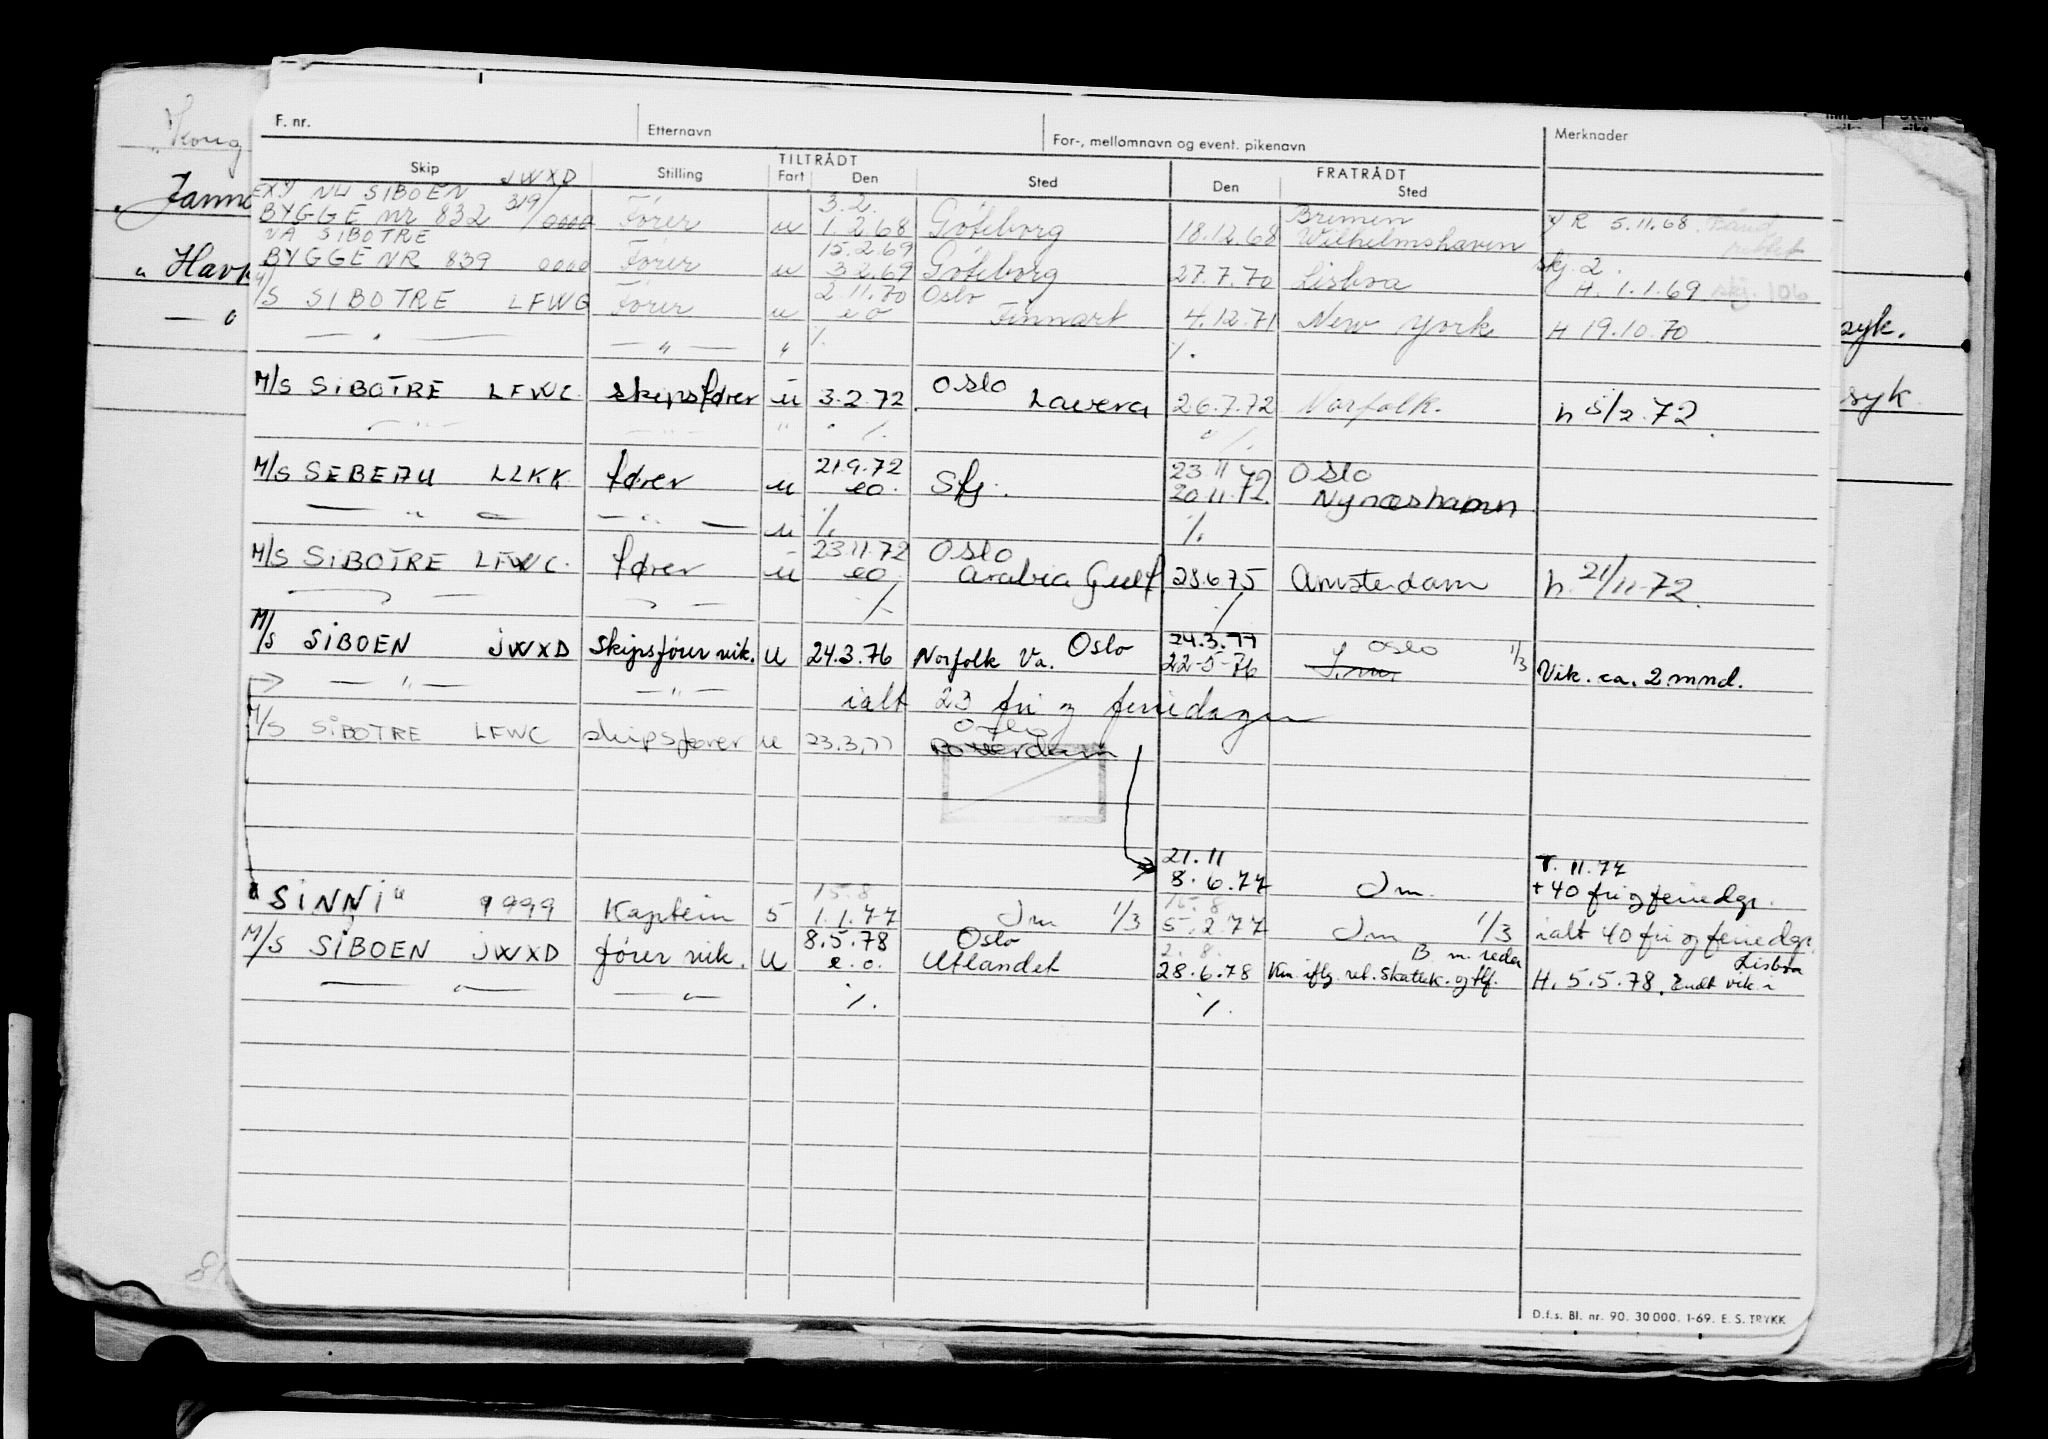 F. nr. Etternavn For-, mellomnavn og event. pikenavn Merknader
TILTRÅDT FRATRÅDT
Skip Stilling Fart Den Sted Den Sted
NU SIBOEN JWXD 3.2. Bremen
BYGGE nr 832 319/0000 Fører u 1.2.68 Göteborg 18.12.68 Wilhelmshaven R 5.11.68.
NÅ SIBOTRE 15.2.69
BYGGE NR 839 0000 Fører u 3.2.69 Göteborg 27.7.70 Lisboa skj. 2. H. 1.1.69 skj. 106
M/S SIBOTRE LFWC Fører u 2.11.70 eo Oslo Finnart 4.12.71 New York H 19.10.70
— " — — " — " /. /.
M/S SIBOTRE LFWC. skipsfører u 3.2.72 Oslo Lavera 26.7.72 Norfolk. h 5/2.72.
— " — — " — " /. /.
M/S SEBEAU LLKK fører u 21.9.72 eo. Sfj. 23.11.72 20.11.72. Oslo Nynæshamn
— " — — " — u /. /.
M/S SIBOTRE LFWC. fører u 23.11.72 eo. Oslo Arabia Gulf 28.6.75 Amsterdam h. 21/11-72.
/. /.
M/S SIBOEN JWXD Skipsfører vik. U 24.3.76 Norfolk Va. Oslo 24.3.77 22-5-76 Oslo 1/3 Vik. ca. 2 mnd.
— " — — " — ialt 23 fri og feriedager
M/S SIBOTRE LFWC skipsfører u 23.3.77 Oslo Rotterdam
21.11 T. 11.77
8.6.77 Im. + 40 fri og feriedgr.
15.8 15.8
"SINNI" 9999 Kaptein 5 1.1.77 Im 1/3 5.2.77 Im 1/3 ialt 40 fri og feriedgr.
M/S SIBOEN JWXD fører vik. U 8.5.78 e.o. Oslo Utlandet 2.8. 28.6.78 B. m. reder Km iflg. rel. skattek. og tlf. H. 5.5.78. Endt vik. Lisboa
— " — — " — /. /.
D.f.s. Bl. nr. 90. 30 000. 1-69. E. S. TRYKK
Kong
Havk
syk.
syk.